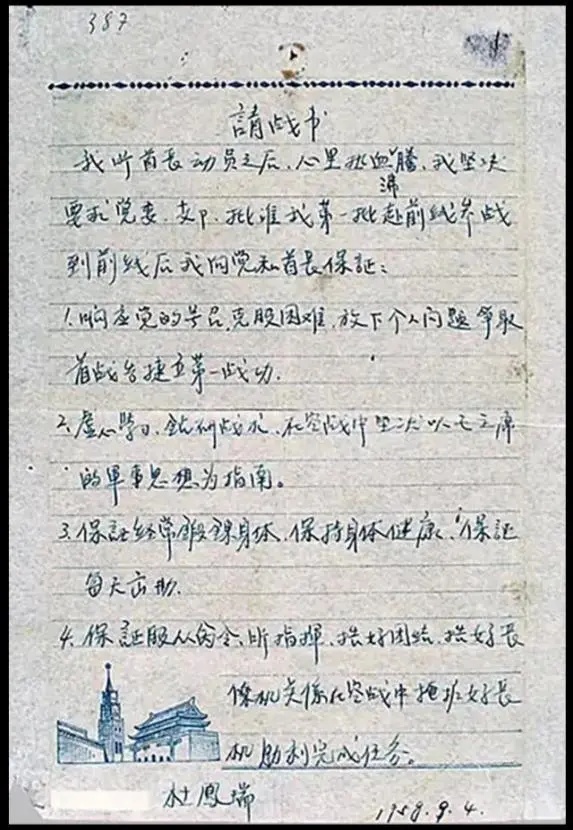 387
請战书
我听首长动员之后、心里热血沸腾、我坚决
要求党委、支P、批准我第一批赴前线参战
到前线后我向党和首长保证:
1.响应党的号召,克服困难,放下个人问题争取
首战告捷立第一战功.
2.虚心学习、钻研战术、在空战中坚决以毛主席
的軍事思想为指南。
3.保証经常鍛鍊身体、保持身体健康、保証
每天出勤.
4.保証服从命令、听指揮、搞好团结、搞好長
僚机关係在空战中掩护好長
机胜利完成任务。
杜鳳瑞
1958.9.4.